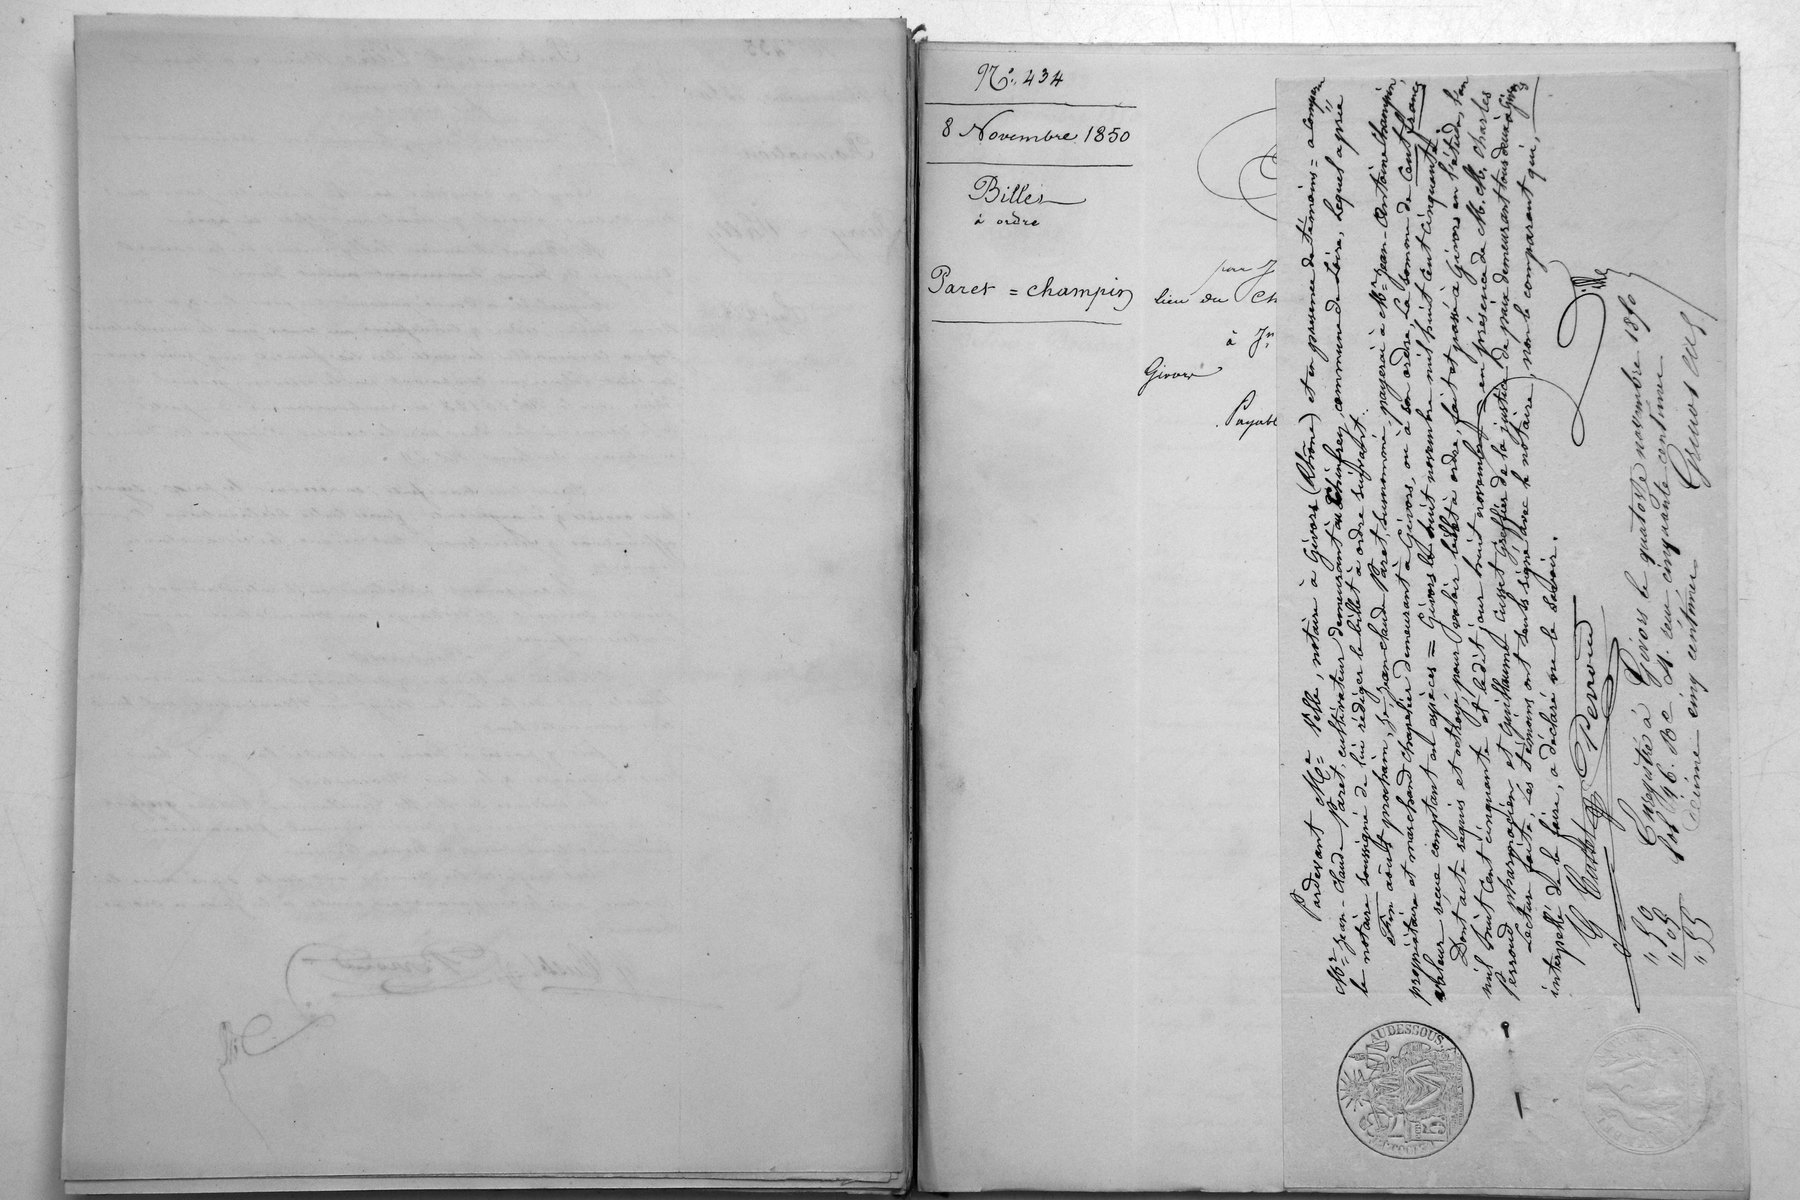 N.° 434
8 Novembre 1850
Billet
à ordre
Paret = champin
pour J
lieu du Ch
à Jn
Givors
Payabl
Pardevant Me Pille, notaire à Givors (Rhône) et en présence de témoins = a comparu
Mr Jean-Claude Paret, cultivateur demeurant au commune de Loire, lequel a prié
le notaire soussigné de lui rédiger le billet à ordre suivant.
Fin août prochain, je Jean Claude Paret, surnommé, payerai à Mr Jean-Antoine Champin
propriétaire et marchand chapelier demeurant à Givors, ou à son ordre, la somme de Cent francs
valeur reçue comptant en espèces = Givors le huit novembre mil huit cent cinquante
Dont acte requis et octroyé, pour valoir billet à ordre, fait et passé à Givors en l'étude, l'an
mil huit cent cinquante et ledit jour huit novembre, en présence de M. M. Charles
Perroud pharmacien et Guillaume Cusset greffier de la justice de paix demeurant tous deux à Givors
Lecture faite, les témoins ont seuls signé avec le notaire, non le comparant qui,
interpellé de le faire, a déclaré ne le savoir.
G Cusset Perroud Pille
Enregistré à Givors le quatorze novembre 1850
fol 196. Re cinquante centimes
décime cinq centimes
" 50
" 05
" 55
AUDESSOUS